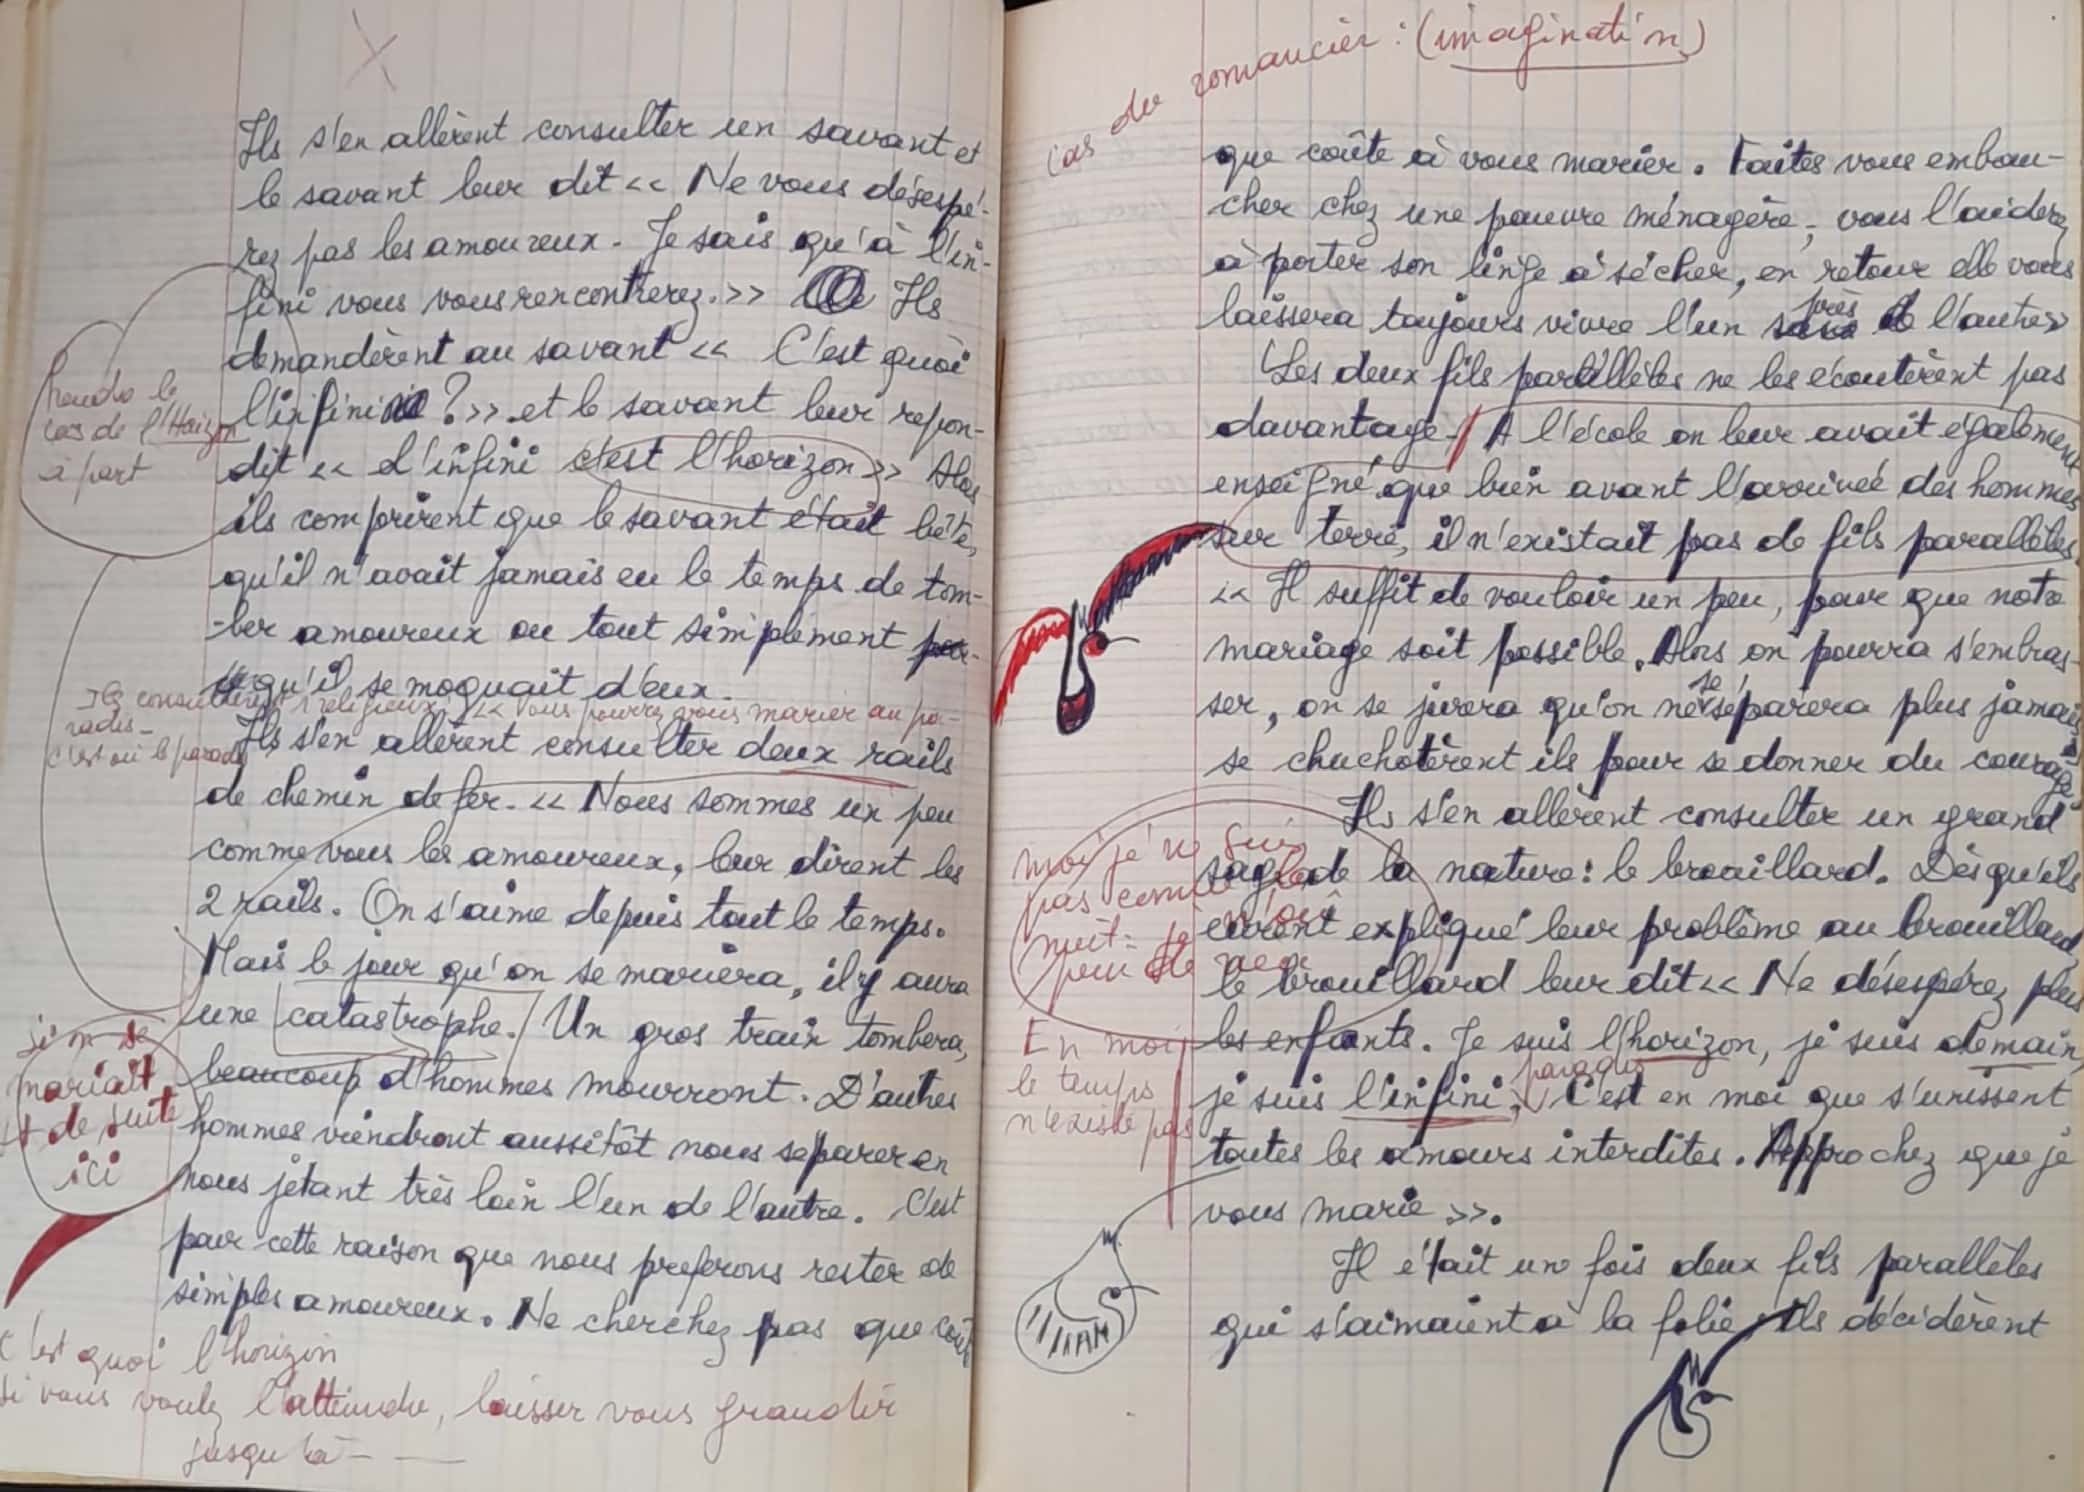 Ils s'en allèrent consulter un savant et
le savant leur dit << Ne vous désespé-
rez pas les amoureux. Je sais qu'à l'in-
fini vous vous rencontrerez. >> Ils
demandèrent au savant << C'est quoi
l'infini ? >> et le savant leur repon-
dit << L'infini c'est l'horizon >> Alors
ils comprirent que le savant était bête,
qu'il n'avait jamais eu le temps de tom-
-ber amoureux ou tout simplement
qu'il se moquait d'eux.
Prendre le
cas de l'Horizon
à part
Ils consultèrent 1 religieux << vous pourrez vous marier au pa-
radis -
C'est où le paradis
Ils s'en allèrent consulter deux rails
de chemin de fer. << Nous sommes un peu
comme vous les amoureux, leur dirent les
2 rails. On s'aime depuis tout le temps.
Mais le jour qu'on se mariera, il y aura
une catastrophe. Un gros train tombera,
beaucoup d'hommes mourront. D'autres
hommes viendront aussitôt nous separer en
nous jetant très loin l'un de l'autre. C'est
pour cette raison que nous preferons rester de
simples amoureux. Ne cherchez pas que coûte
si on se
mariait
de suite
ici
C'est quoi l'horizon
Si vous voulez l'atteindre, laisser vous grandir
jusqu'à - —
cas du romancier : (imagination)
que coûte à vous marier. Faites vous embau-
cher chez une pauvre ménagère, vous l'aiderez
à porter son linge à sécher, en retour elle vous
laissera toujours vivre l'un près de l'autre >>
Les deux fils parallèles ne les écoutèrent pas
davantage. A l'école on leur avait également
enseigné que bien avant l'arrivée des hommes
sur terre, il n'existait pas de fils parallèles.
<< Il suffit de vouloir un peu, pour que notre
mariage soit possible. Alors on pourra s'embras-
ser, on se jurera qu'on ne se séparera plus jamais >>
se chuchotèrent ils pour se donner du courage.
Ils s'en allèrent consulter un grand
sage de la nature : le brouillard. Dès qu'ils
eurent expliqué leur problème au brouillard,
le brouillard leur dit << Ne désespérez plus
les enfants. Je suis l'horizon, je suis demain,
paradis
je suis l'infini, C'est en moi que s'unissent
toutes les amours interdites. Approchez que je
vous marie >>.
moi je ne suis
pas comme la
nuit : je n'ai
peur de
En moi
le temps
n'existe pas
Il était une fois deux fils parallèles
qui s'aimaient à la folie. Ils décidèrent